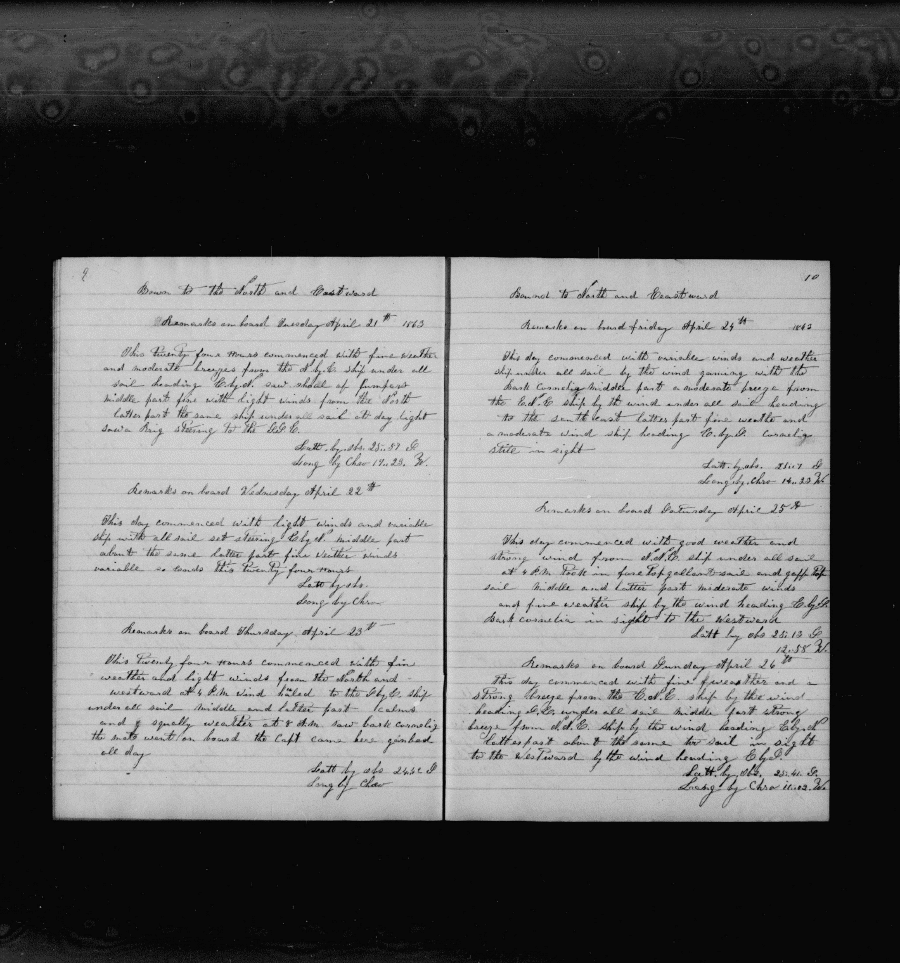 9
Bown to the North and Eastward
Remarks on board Tuesday April 21th 1863
This twenty four hours commenced with fine weather
and moderate breezes from the N.by.E. ship under all
sail heading E.by.N. saw shoal of jumpers
middle part fine with light winds from the North
latter part the same ship under all sail at day light
saw a Brig steering to the
Latt. by obs. 25..37 S
Long by Chro 17..23. W.
Remarks on board Wednesday April 22th
This day commenced with light winds and variable
ship with all sail set steering E.by.N. middle part
about the same latter part fine weather winds
variable so ends this twenty four hours
Latt by obs.
Long by Chro
Remarks on board Thursday April 23th
This Twenty four hours commenced with fin
weather and light winds from the North and
westward at 4 P.M wind haled to the ship
under all sail middle and latter part calms
and squally weather at 8 A.M. saw bark
the mate went on board the Capt. came here
all day
Latt by obs S
Long by Chro
10
Bound to North and Eeastward
Remarks on board friday April 24th 1863
This day commenced with variable winds and weather
ship under all sail by the wind gaming with the
Bark cornelia middle part a moderate breeze from
the E.N.E. ship by th wind under all sail heading
to the south east latter part fine weathe and
a moderate wind ship heading E.by.S.
still in sight
Latt. by obs. S
Long. by. Chro W.
Remarks on board Saturday April 25th
This day commenced with good weather and
strong wind from N.N.E. ship under all sail
at 4 P.M Took in fore Top gallant sail and gaff Top
sail middle and latter part moderate winds
and fine weather ship by the wind heading E.by.S.
Bark cornelia in sight to the Westward
Latt by obs 25..13 S
12..58 W.
Remarks on board Sunday April 26th
this day commenced with fine weather and a
strong breeze from the E.N.E. ship by the wind
heading S.E. under all sail middle part strong
breeze from N.N.E. ship by the wind heading E.by.N
latter part about the same sail in sight
to the Westward by the wind heading E.by.S.
Latt. by Obs. 25..41. S.
Long by Chro 11..02. W.